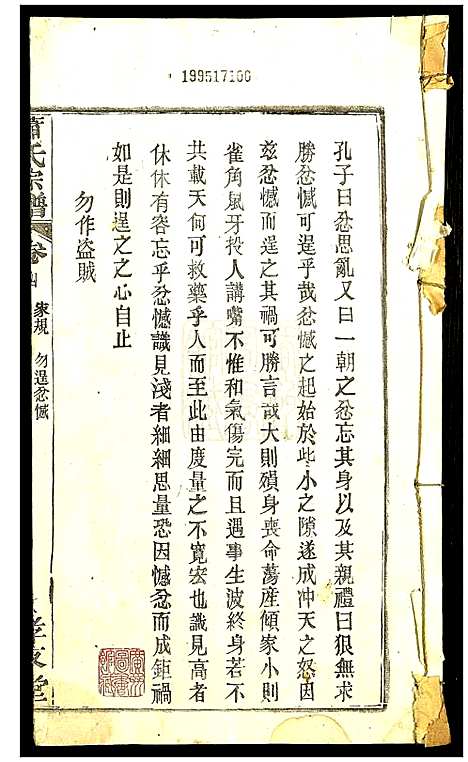 199517100
孔子曰忿思亂又曰一朝之忿忘其身以及其親禮曰狠無求
勝忿憾可逞乎哉忿憾之起始於些小之隙遂成冲天之怒因
玆忿憾而逞之其禍可勝言哉大則殞身喪命蕩産傾家小則
雀角鼠牙投人講嘴不惟和氣傷完而且遇事生波終身若不
共載天何可救藥乎人而至此由度量之不寬宏也識見高者
休休有容忘乎忿憾識見淺者細細思量恐因憾忿而成鉅禍
如是則逞之之心自止
勿作盜賊
氏宗譜
卷四
家規
勿逞忿憾
堂